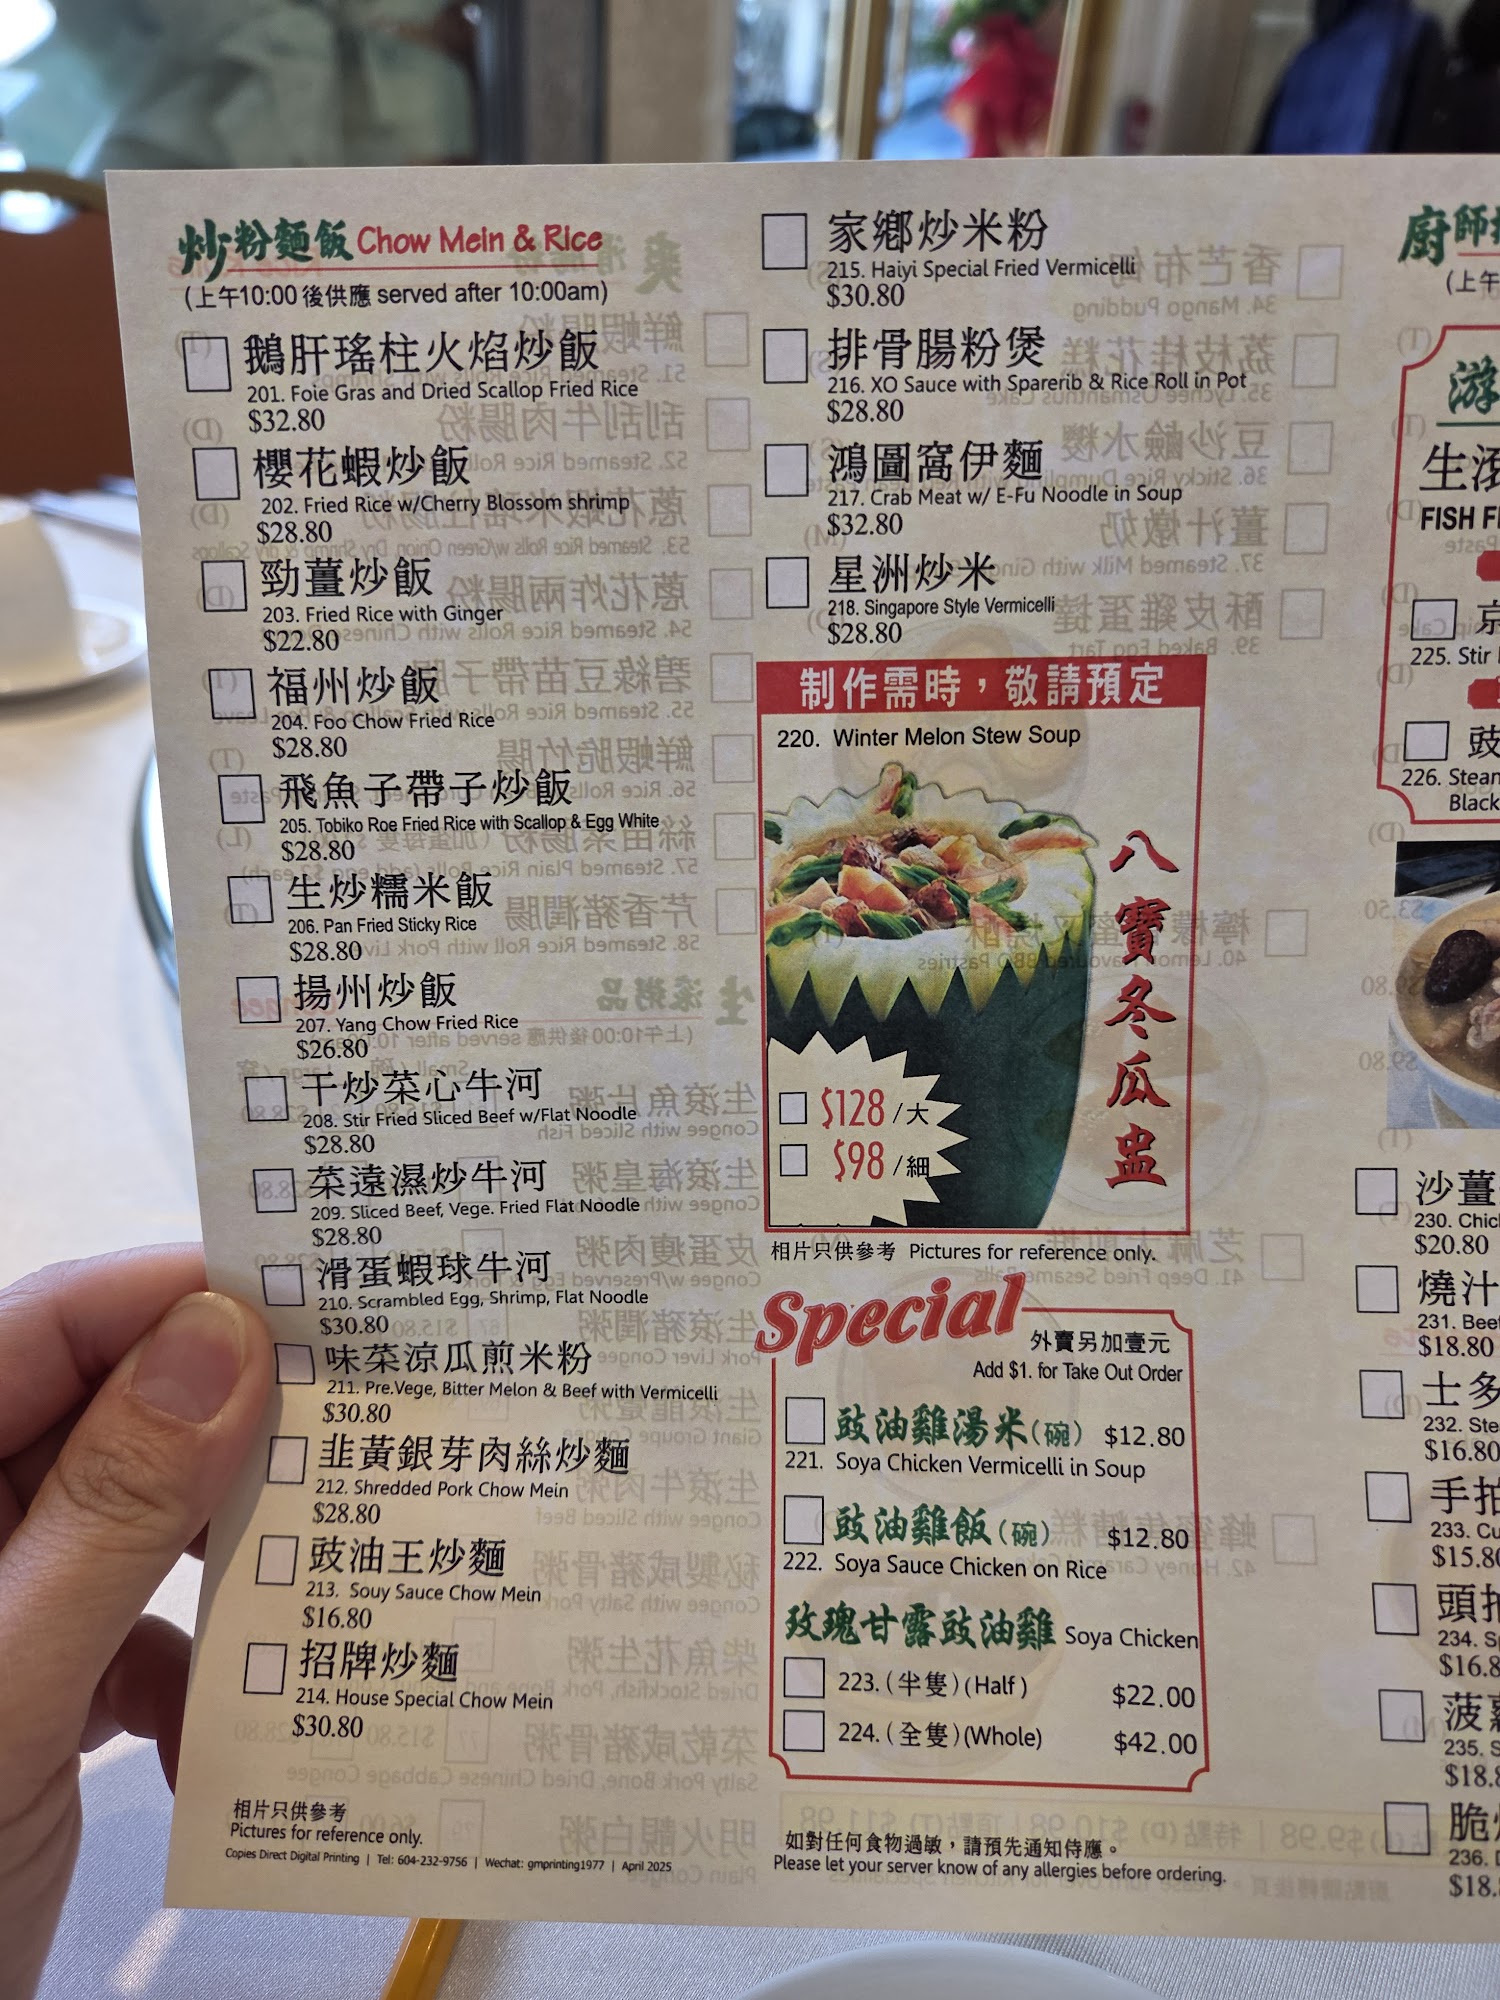 炒粉麵飯 Chow Mein & Rice
(上午10:00後供應 served after 10:00am)
鵝肝瑤柱火焰炒飯
201. Foie Gras and Dried Scallop Fried Rice
$32.80
櫻花蝦炒飯
202. Fried Rice w/Cherry Blossom shrimp
$28.80
勁薑炒飯
203. Fried Rice with Ginger
$22.80
福州炒飯
204. Foo Chow Fried Rice
$28.80
飛魚子帶子炒飯
205. Tobiko Roe Fried Rice with Scallop & Egg White
$28.80
生炒糯米飯
206. Pan Fried Sticky Rice
$28.80
揚州炒飯
207. Yang Chow Fried Rice
$26.80
干炒菜心牛河
208. Stir Fried Sliced Beef w/Flat Noodle
$28.80
菜遠濕炒牛河
209. Sliced Beef, Vege. Fried Flat Noodle
$28.80
滑蛋蝦球牛河
210. Scrambled Egg, Shrimp, Flat Noodle
$30.80
味菜涼瓜煎米粉
211. Pre.Vege, Bitter Melon & Beef with Vermicelli
$30.80
韭黃銀芽肉絲炒麵
212. Shredded Pork Chow Mein
$28.80
豉油王炒麵
213. Souy Sauce Chow Mein
$16.80
招牌炒麵
214. House Special Chow Mein
$30.80
相片只供參考
Pictures for reference only.
Copies Direct Digital Printing | Tel: 604-232-9756 | Wechat: gmprinting1977 | April 2025
家鄉炒米粉
215. Haiyi Special Fried Vermicelli
$30.80
排骨腸粉煲
216. XO Sauce with Sparerib & Rice Roll in Pot
$28.80
鴻圖窩伊麵
217. Crab Meat w/ E-Fu Noodle in Soup
$32.80
星洲炒米
218. Singapore Style Vermicelli
$28.80
制作需時，敬請預定
220. Winter Melon Stew Soup
八寶冬瓜盅
$128 /大
$98 /細
相片只供參考 Pictures for reference only.
Special
外賣另加壹元
Add $1. for Take Out Order
豉油雞湯米(碗) $12.80
221. Soya Chicken Vermicelli in Soup
豉油雞飯(碗) $12.80
222. Soya Sauce Chicken on Rice
玫瑰甘露豉油雞 Soya Chicken
223.(半隻)(Half) $22.00
224.(全隻)(Whole) $42.00
如對任何食物過敏，請預先通知侍應。
Please let your server know of any allergies before ordering.
廚師
(上午
游
生滾
FISH
京
225. Stir
豉
226. Steam
Black
沙薑
230. Chic
$20.80
燒汁
231. Beef
$18.80
士多
232. Ste
$16.80
手拍
233. Cu
$15.80
頭抽
234.
$16.8
菠蘿
235. S
$18.8
脆
236.
$18.